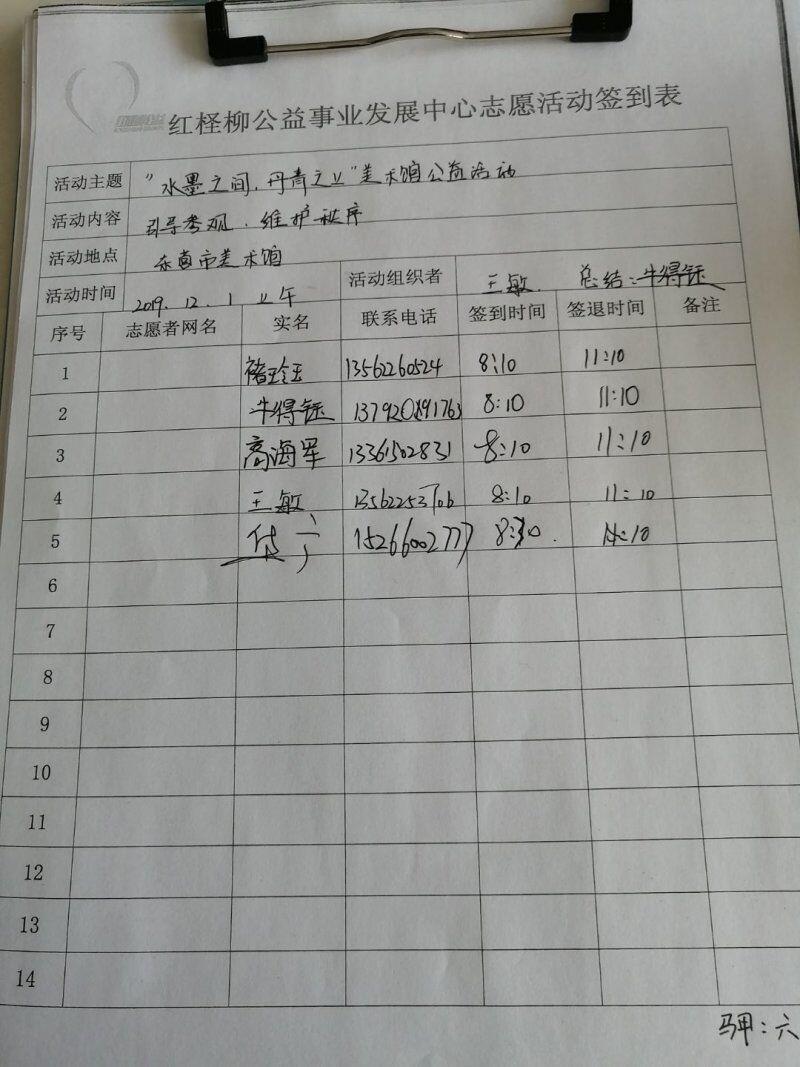 红柽柳公益事业发展中心志愿活动签到表
活动主题 "水墨之间,丹青之上"美术馆公益活动
活动内容 引导参观、维护秩序
活动地点 东营市美术馆
活动时间 2019.12.1 上午 活动组织者 王敏 总结:牛得钰
序号 志愿者网名 实名 联系电话 签到时间 签退时间 备注
1 褚玲玉 13562260524 8:10 11:10
2 牛得钰 8:10 11:10
3 高海军 13361502831 8:10 11:10
4 王敏 13562253706 8:10 11:10
5 15266002777
6
7
8
9
10
11
12
13
14
：六